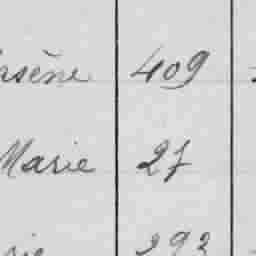 Arsène 409
Marie 27
293